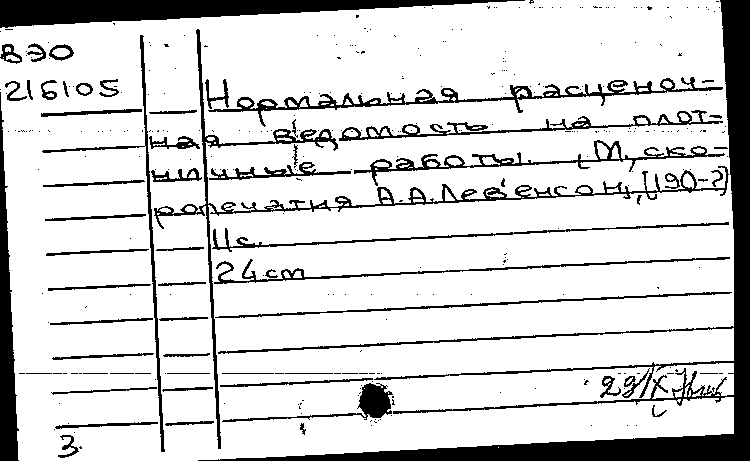 ВЭО
216105
Нормальная расценоч=
ная ведомость на плот=
ничные работы. [М., ско=
ропечатня А.А. Левенсон], [190-?]
11 с.
24 cm
29/X
3.